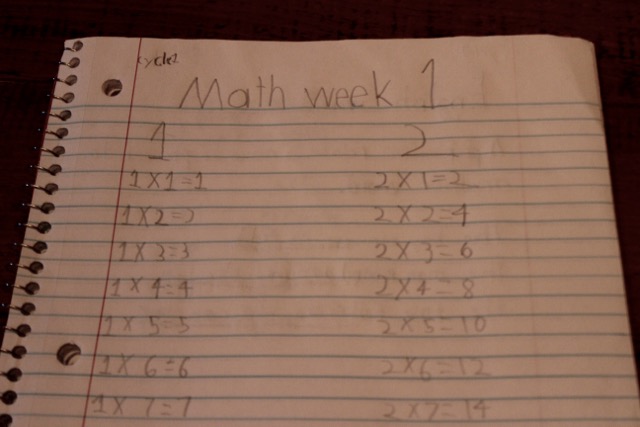 cycle1
Math week 1
1 2
1x1=1 2x1=2
1x2=2 2x2=4
1x3=3 2x3=6
1x4=4 2x4=8
1x5=5 2x5=10
1x6=6 2x6=12
1x7=7 2x7=14